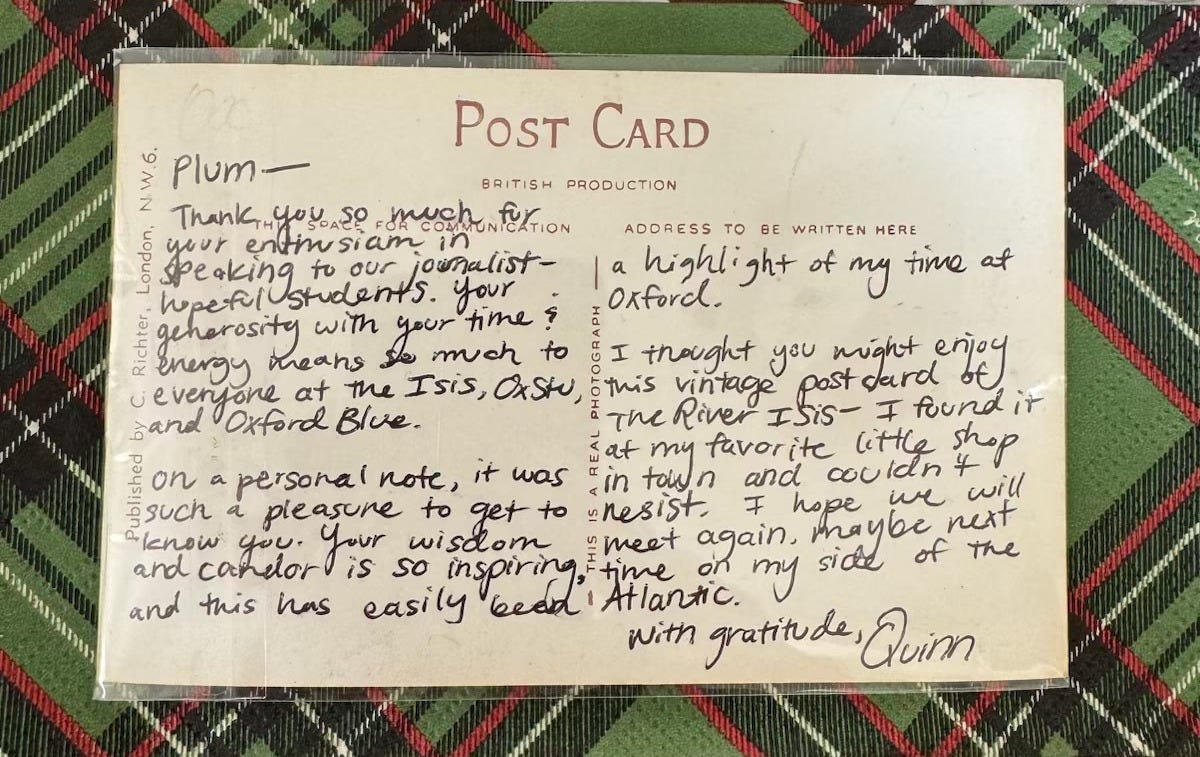 POST CARD
BRITISH PRODUCTION
THIS SPACE FOR COMMUNICATION
ADDRESS TO BE WRITTEN HERE
Published by C. Richter, London, N.W.6.
THIS IS A REAL PHOTOGRAPH
Plum—
Thank you so much for
your enthusiam in
speaking to our journalist-
hopeful students. Your
generosity with your time &
energy means so much to
everyone at the Isis, OxStu,
and Oxford Blue.
On a personal note, it was
such a pleasure to get to
know you. Your wisdom
and candor is so inspiring,
and this has easily been
a highlight of my time at
Oxford.
I thought you might enjoy
this vintage postcard of
The River Isis- I found it
at my favorite little shop
in town and couldn't
resist. I hope we will
meet again, maybe next
time on my side of the
Atlantic.
with gratitude, Quinn